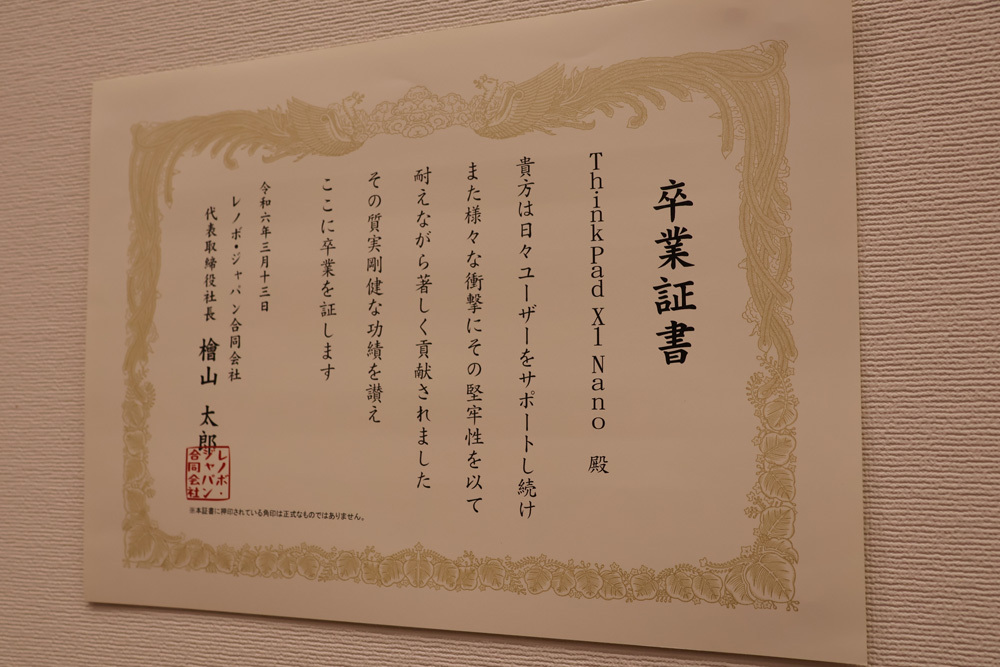 卒業証書
ThinkPad X1 Nano 殿
貴方は日々ユーザーをサポートし続け
また様々な衝撃にその堅牢性を以て
耐えながら著しく貢献されました
その質実剛健な功績を讃え
ここに卒業を証します
令和六年三月十三日
レノボ・ジャパン合同会社
代表取締役社長 檜山 太郎
レノボ・
ジャパン
合同会社
※本証書に押印されている角印は正式なものではありません。